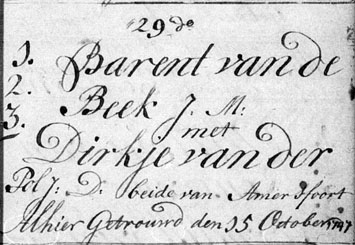 29de
1. Barent van de
2. Beek J. M:
3. met
Dirkje van der
Pol J: D: beide van Amersfoort
Alhier Getrouwd den 15 October 1747